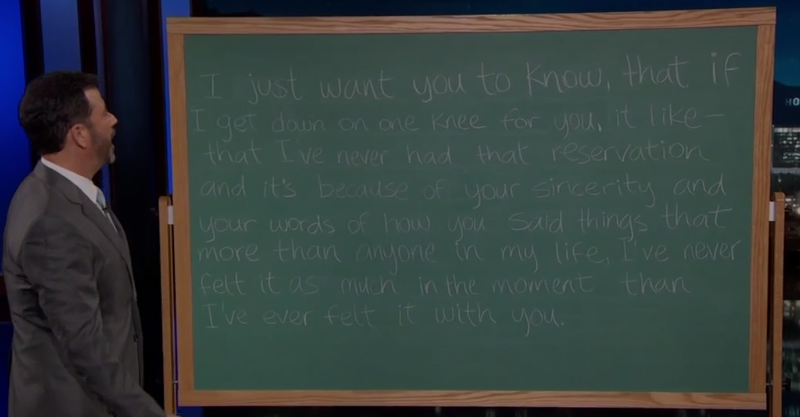 I just want you to know, that if
I get down on one knee for you, it like –
that I've never had that reservation
and it's because of your sincerity and
your words of how you said things that
more than anyone in my life, I've never
felt it as much in the moment than
I've ever felt it with you.
HO